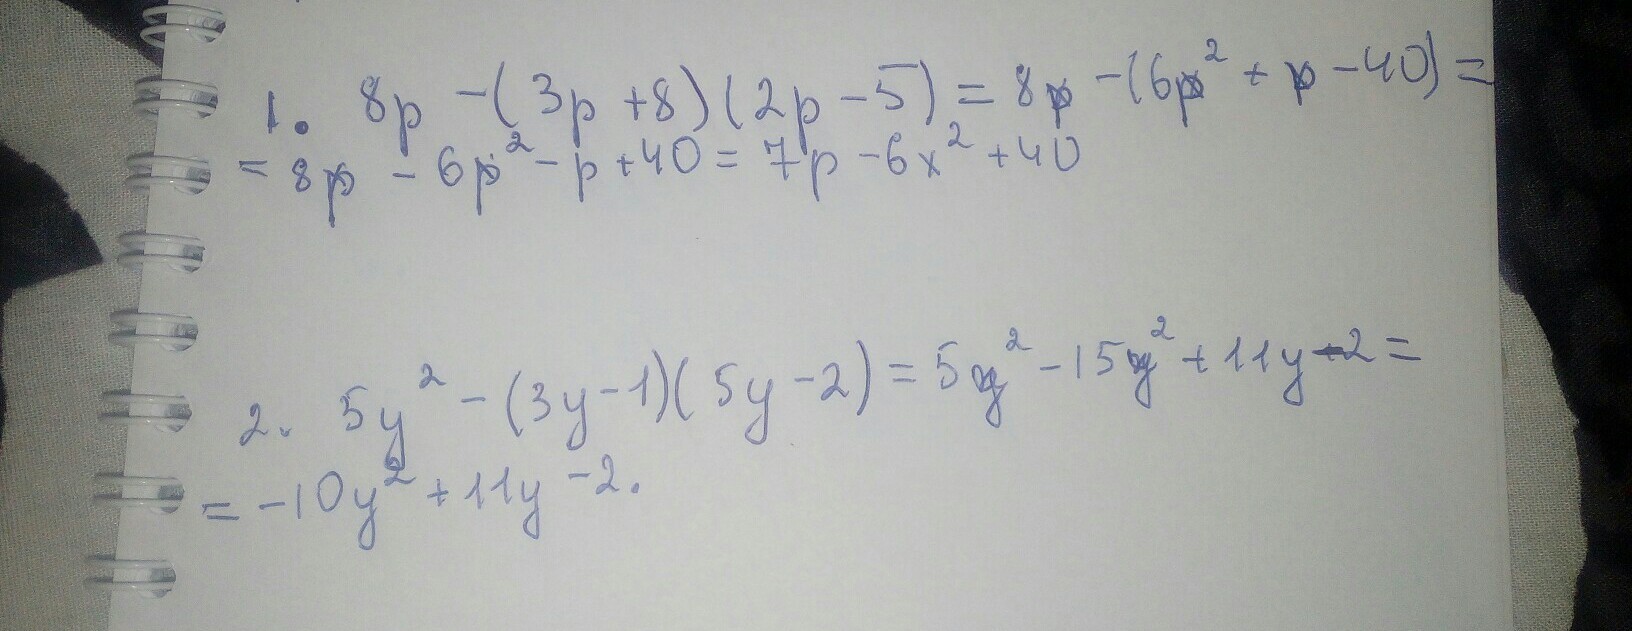 1. 8p - (3p + 8)(2p - 5) = 8p - (6p² + p - 40) =
= 8p - 6p² - p + 40 = 7p - 6x² + 40
2. 5y² - (3y - 1)(5y - 2) = 5y² - 15y² + 11y - 2 =
= -10y² + 11y - 2.